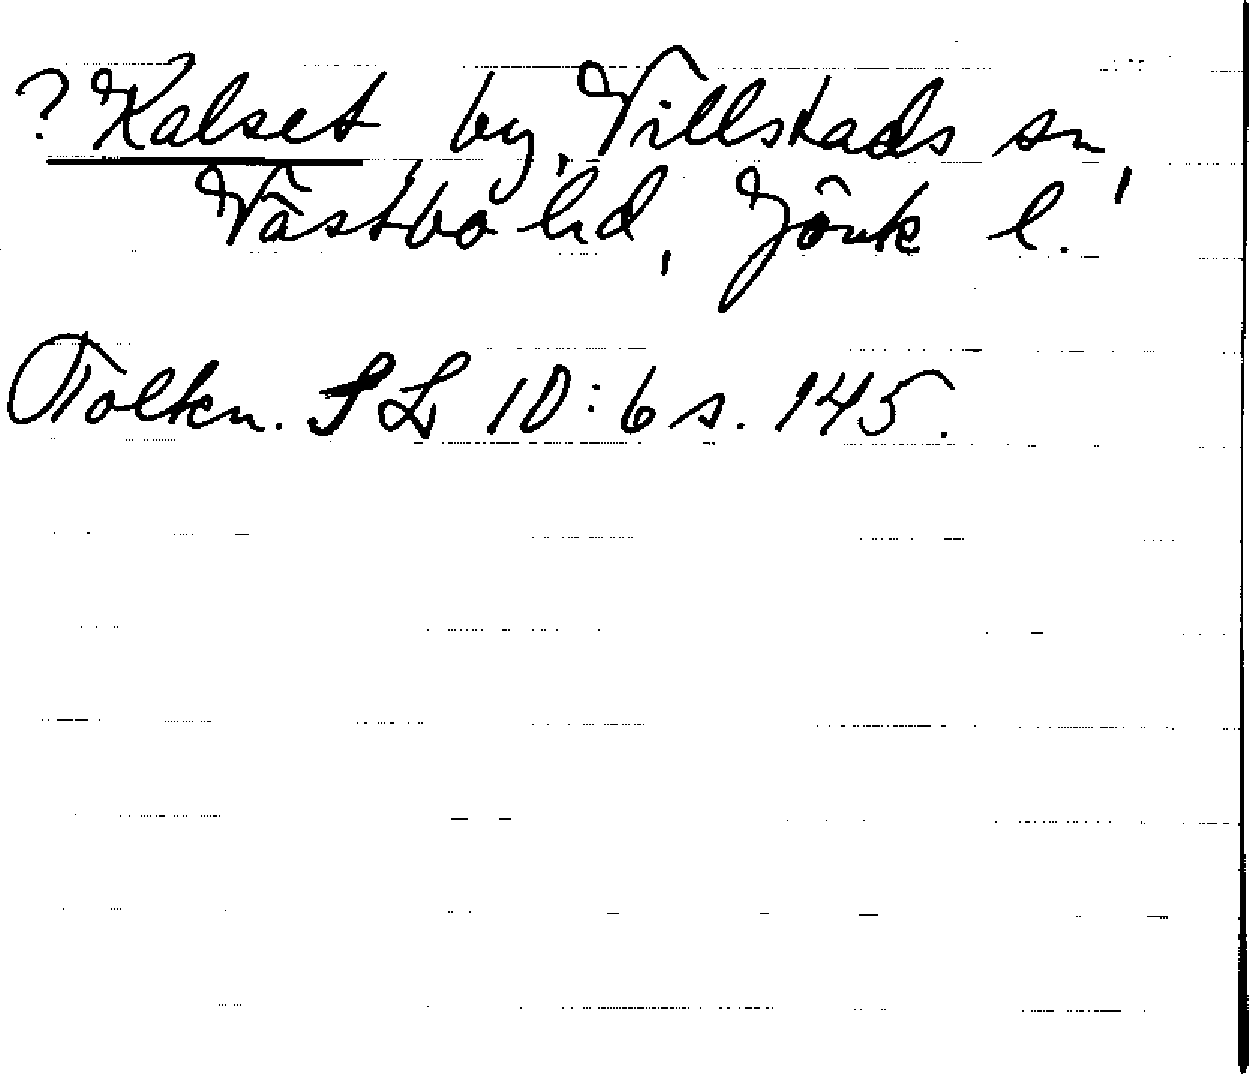 ? Kalset, by, Villstads sn,
Västbo hd, Jönk l.
Tolkn. SL 10:6 s. 145.